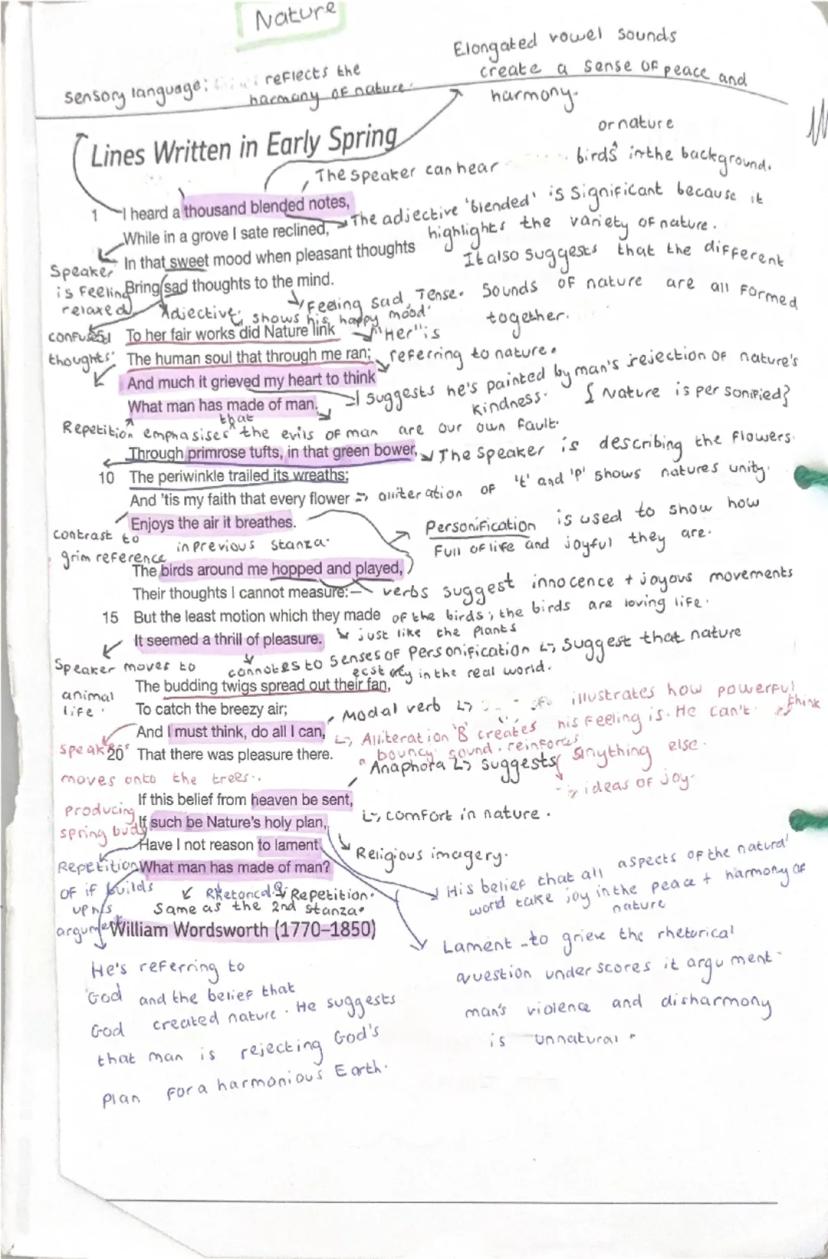 Nature
Elongated vowel sounds
create a sense of peace and
harmony.
sensory language: reflects the
harmony of nature.
Lines Written in Early Spring
or nature
The speaker can hear birds in the background.
1 I heard a thousand blended notes,
The adjective 'blended' is significant because it
highlights the variety of nature.
It also suggests that the different
sounds of nature are all formed
together.
While in a grove I sate reclined,
In that sweet mood when pleasant thoughts
Bring sad thoughts to the mind.
Speaker
is feeling
relaxed
Adjective, shows his happy mood
Feeling sad, Tense.
confused
thoughts
5 To her fair works did Nature link
"Her" is
referring to nature.
The human soul that through me ran;
And much it grieved my heart to think
What man has made of man.
suggests he's painted by man's rejection of nature's
kindness. { Nature is personified}
Repetition emphasises that the evils of man are our own fault.
Through primrose tufts, in that green bower,
The speaker is describing the flowers.
10 The periwinkle trailed its wreaths;
And 'tis my faith that every flower
alliteration of 't' and 'P' shows natures unity.
Enjoys the air it breathes.
contrast to
grim reference in previous stanza.
Personification is used to show how
full of life and joyful they are.
The birds around me hopped and played,
Their thoughts I cannot measure:—
verbs suggest innocence + joyous movements
of the birds; the birds are loving life.
15 But the least motion which they made
It seemed a thrill of pleasure.
just like the plants
connotes to senses of ecstasy
Personification suggest that nature
in the real world.
Speaker moves to
animal
life.
The budding twigs spread out their fan,
To catch the breezy air;
And I must think, do all I can,
20 That there was pleasure there.
Modal verb illustrates how powerful
his feeling is. He can't think
anything else.
Alliteration 'B' creates
a bouncy sound. reinforces
ideas of joy.
speaker
moves onto the trees..
producing
spring buds
Anaphora suggests
comfort in nature.
If this belief from heaven be sent,
If such be Nature's holy plan,
Have I not reason to lament
What man has made of man?
Religious imagery.
Repetition
of if builds
up his
argument
Rhetorical Q
Repetition.
Same as the 2nd stanza.
William Wordsworth (1770–1850)
His belief that all aspects of the natural
word take joy in the peace + harmony of
nature
Lament - to grieve the rhetorical
question underscores it argument
man's violence and disharmony
is unnatural.
He's referring to
God and the belief that
God created nature. He suggests
that man is rejecting God's
plan for a harmonious Earth.